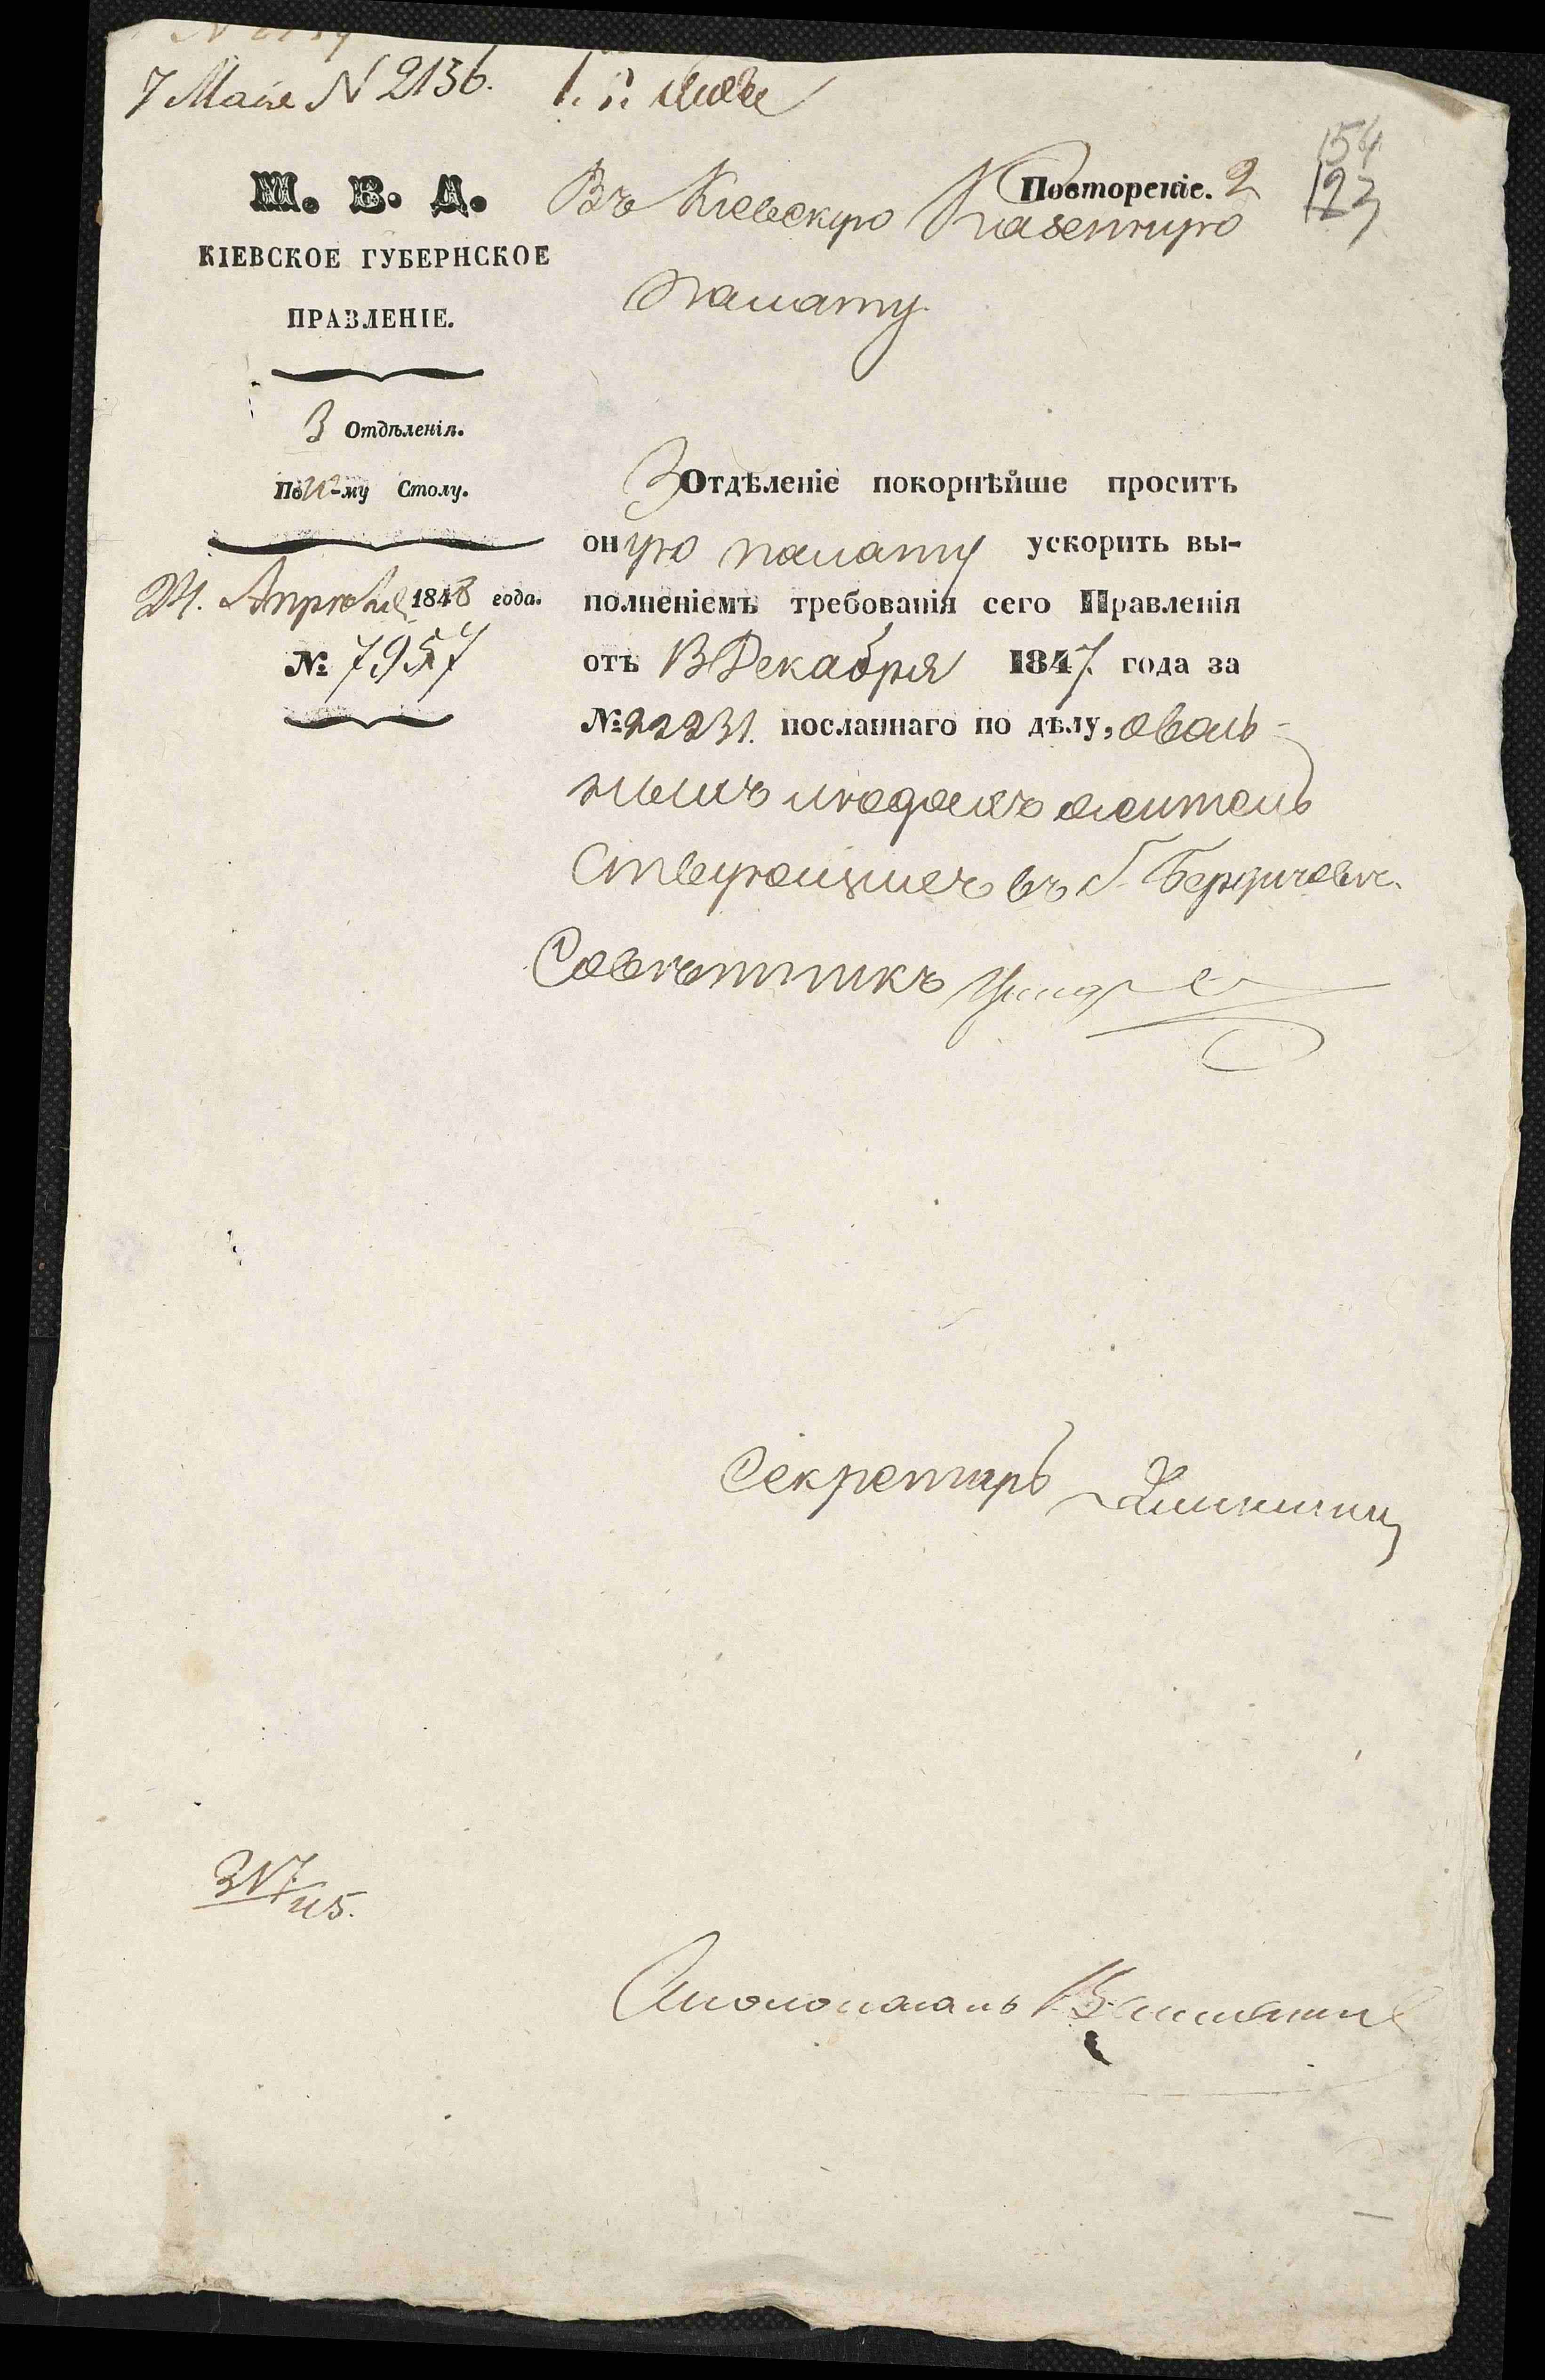 7 Маія N 2136.
154
123
М. В. Д.
КІЕВСКОЕ ГУБЕРНСКОЕ
ПРАВЛЕНІЕ.
3 Отдѣленія.
По му Столу.
24. Апрѣля 1848 года.
№ 7957
Повтореніе. 2
Въ Кіевскую Казенную
Палату.
3 Отдѣленіе покорнѣйше проситъ
оную палату ускорить вы-
полненіемъ требованія сего Правленія
отъ 13 Декабря 1847 года за
№ 22231. посланнаго по дѣлу, о воль-
ныхъ людяхъ житель
ствующихъ въ г. Бердичевѣ.
Совѣтникъ
Секретарь
Столоначальн